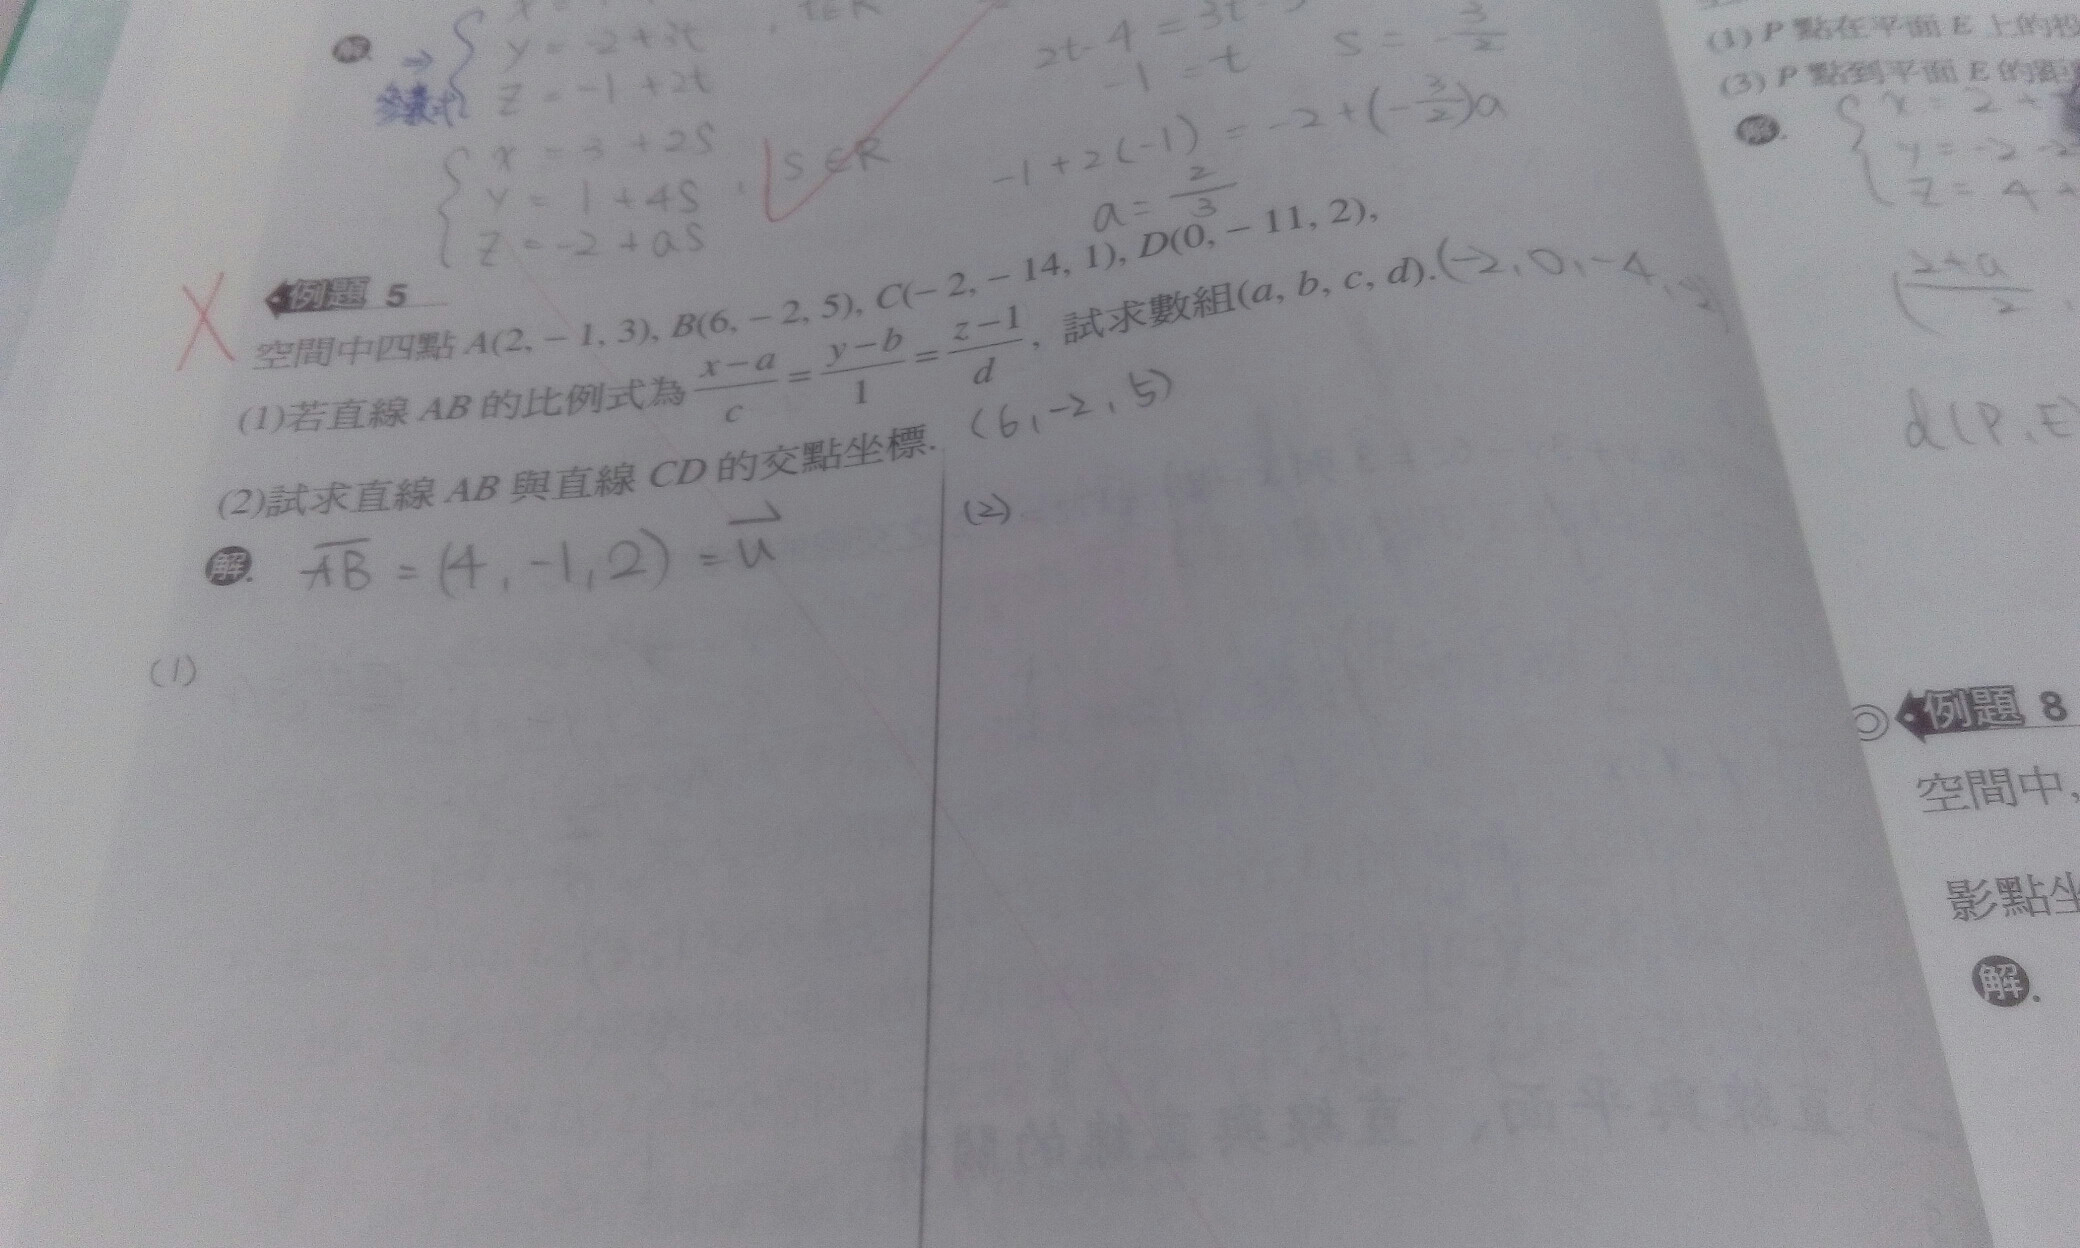 y = -2 + 3t
z = -1 + 2t
x = 3 + 2S
y = 1 + 4S , S ∈ R
z = -2 + aS
2t - 4 = 3t
-1 = t
S = -3/2
-1 + 2(-1) = -2 + (-3/2)a
a = 2/3
例題 5
空間中四點 A(2, – 1, 3), B(6, – 2, 5), C(– 2, – 14, 1), D(0, – 11, 2),
(1)若直線 AB 的比例式為 x–a/c = y–b/1 = z–1/d, 試求數組(a, b, c, d). (-2, 0, -4, -2)
(2)試求直線 AB 與直線 CD 的交點坐標. (6, -2, 5)
解. AB = (4, -1, 2) = u
(1)
(2)
P 點在平面 E 上的投
(3) P 點到平面 E 的距
解.
x = 2 +
y = -2 -
z = 4 +
2+a/2
d(P, E)
例題 8
空間中,
影點坐
解.